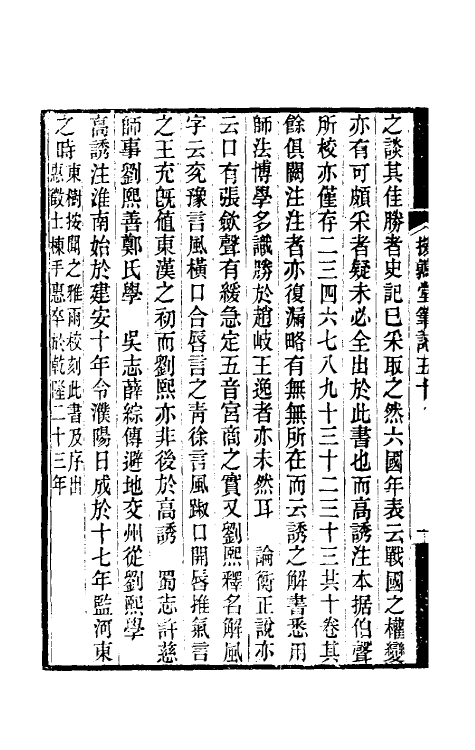 援鶉堂筆記五十
之談其佳勝者史記已采取之然六國年表云戰國之權變
亦有可頗采者疑未必全出於此書也而高誘注本据伯聲
所校亦僅存二三四六七八九十三十二三十三其十卷其
餘俱闕注注者亦復漏略有無無所在而云誘之解書悉用
師法博學多識勝於趙岐王逸者亦未然耳　論衡正說亦
云口有張歙聲有緩急定五音宮商之實又劉熙釋名解風
字云兖豫言風橫口合唇言之青徐言風踧口開唇推氣言
之王充旣值東漢之初而劉熙亦非後於高誘　蜀志許慈
師事劉熙善鄭氏學　吳志薛綜傳避地交州從劉熙學
高誘注淮南始於建安十年令濮陽日成於十七年監河東
之時東樹按聞之雅雨校刻此書及序出
惠徵士棟手惠卒於乾隆二十三年